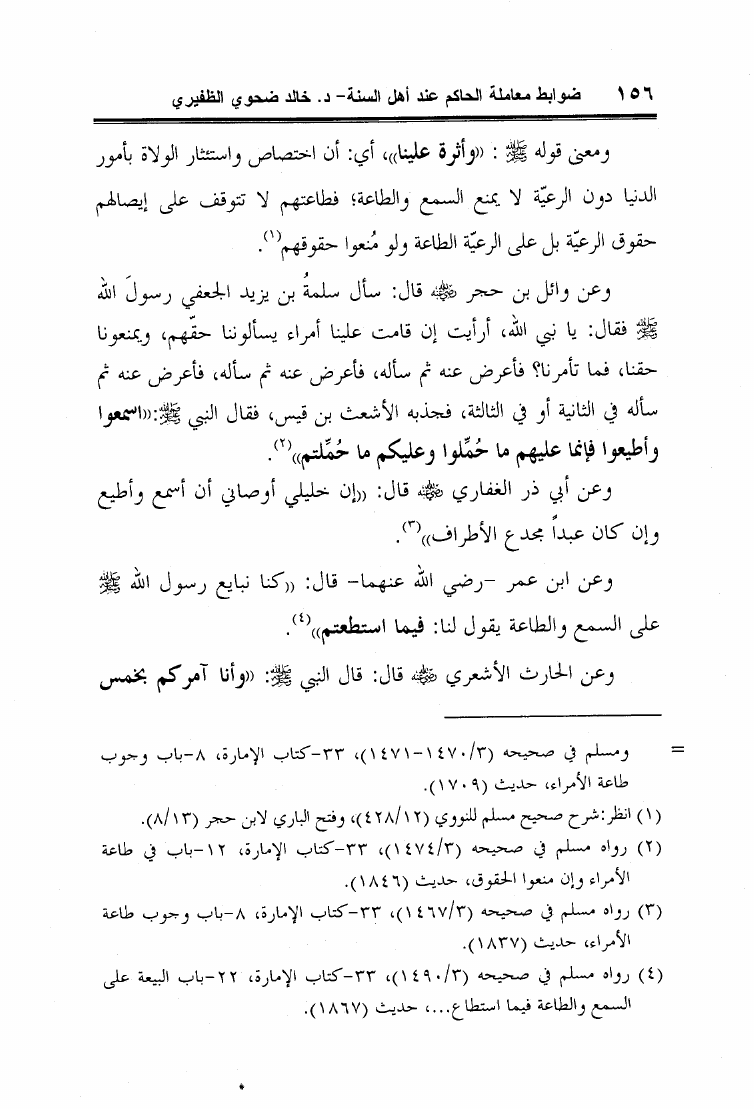 ١٥٦ ضوابط معاملة الحاكم عند أهل السنة- د. خالد ضحوي الظفيري
ومعنى قوله ﷺ : ((وأثرة علينا))، أي: أن اختصاص واستئثار الولاة بأمور
الدنيا دون الرعيّة لا يمنع السمع والطاعة؛ فطاعتهم لا تتوقف على إيصالهم
حقوق الرعيّة بل على الرعيّة الطاعة ولو مُنعوا حقوقهم(١).
وعن وائل بن حجر رضي الله عنه قال: سأل سلمةُ بن يزيد الجعفي رسولَ الله
ﷺ فقال: يا نبي الله، أرأيت إن قامت علينا أمراء يسألوننا حقّهم، ويمنعونا
حقنا، فما تأمرنا؟ فأعرض عنه ثم سأله، فأعرض عنه ثم سأله، فأعرض عنه ثم
سأله في الثانية أو في الثالثة، فجذبه الأشعث بن قيس، فقال النبي ﷺ:((اسمعوا
وأطيعوا فإنما عليهم ما حُمِّلوا وعليكم ما حُمِّلتم))(٢).
وعن أبي ذر الغفاري رضي الله عنه قال: ((إن خليلي أوصاني أن أسمع وأطيع
وإن كان عبداً مجدع الأطراف))(٣).
وعن ابن عمر -رضي الله عنهما- قال: ((كنا نبايع رسول الله ﷺ
على السمع والطاعة يقول لنا: فيما استطعتم))(٤).
وعن الحارث الأشعري رضي الله عنه قال: قال النبي ﷺ: ((وأنا آمركم بخمس
= ومسلم في صحيحه (١٤٧٠/٣-١٤٧١)، ٣٣-كتاب الإمارة، ٨-باب وجوب
طاعة الأمراء، حديث (١٧٠٩).
(١) انظر:شرح صحيح مسلم للنووي (٤٢٨/١٢)، وفتح الباري لابن حجر (٨/١٣).
(٢) رواه مسلم في صحيحه (١٤٧٤/٣)، ٣٣-كتاب الإمارة، ١٢-باب في طاعة
الأمراء وإن منعوا الحقوق، حديث (١٨٤٦).
(٣) رواه مسلم في صحيحه (١٤٦٧/٣)، ٣٣-كتاب الإمارة، ٨-باب وجوب طاعة
الأمراء، حديث (١٨٣٧).
(٤) رواه مسلم في صحيحه (١٤٩٠/٣)، ٣٣-كتاب الإمارة، ٢٢-باب البيعة على
السمع والطاعة فيما استطاع...، حديث (١٨٦٧).